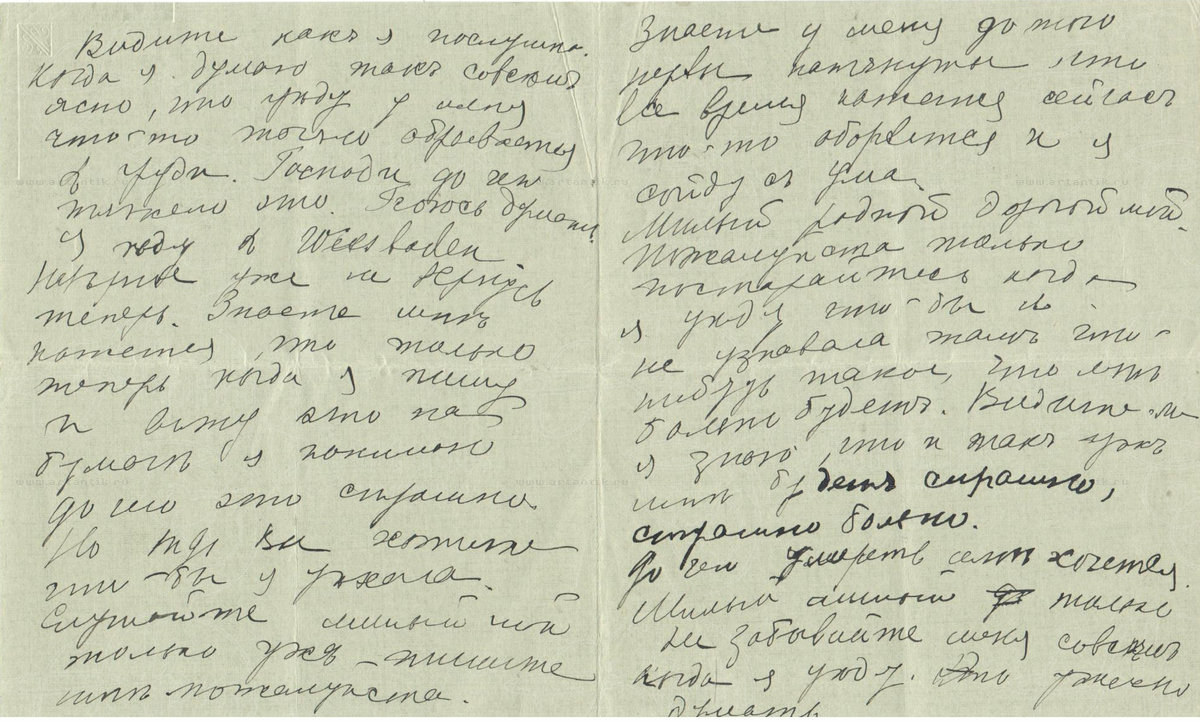 Видите какъ я послушна.
Когда я думаю такъ совсѣмъ
ясно, что уѣду у меня
что-то точно обрывается
в груди. Господи до чего
тяжело это. Боюсь думать.
Я ѣду в Wiesbaden
уже не вернусь
теперь. Знаете мнѣ
кажется, что только
теперь когда я пишу
и вижу это на
бумагѣ я понимаю
до чего это страшно.
Но вѣдь Вы хотите
что-бы я уѣхала.
Слушайте милый мой
только ужъ пишите
мнѣ пожалуйста.
Знаете у меня до того
нервы натянуты, что
все время кажется сейчасъ
что-то оборвется и я
сойду съ ума.
Милый родной дорогой мой.
Пожалуйста только
постарайтесь когда
я уѣду что-бы я
не узнавала тамъ что-
нибудь такое, что мнѣ
больно будетъ. Видите-ли
я знаю, что и такъ ужъ
мнѣ будетъ страшно,
страшно больно.
До чего умереть мнѣ хочется.
Милый милый только
не забывайте меня совсѣмъ
когда я уѣду. Это ужасно
думать
www.artantik.ru
www.artantik.ru